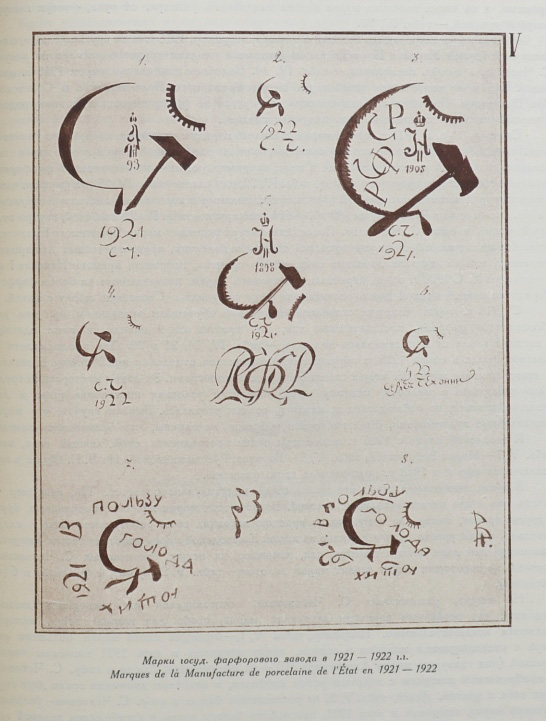 IV
1.
2.
3.
93
1921
С.Ч.
1922
С.Ч.
РСФСР
Н
1908
С.Ч.
1921.
Н
1898
С.Ч.
1921.
РСФСР
4.
С.Ч.
1922
6.
1922
7.
1921 В ПОЛЬЗУ
ГОЛОДА
8.
1921. В ПОЛЬЗУ
ГОЛОДА
Марки госуд. фарфорового завода в 1921 — 1922 г.г.
Marques de la Manufacture de porcelaine de l'État en 1921 — 1922